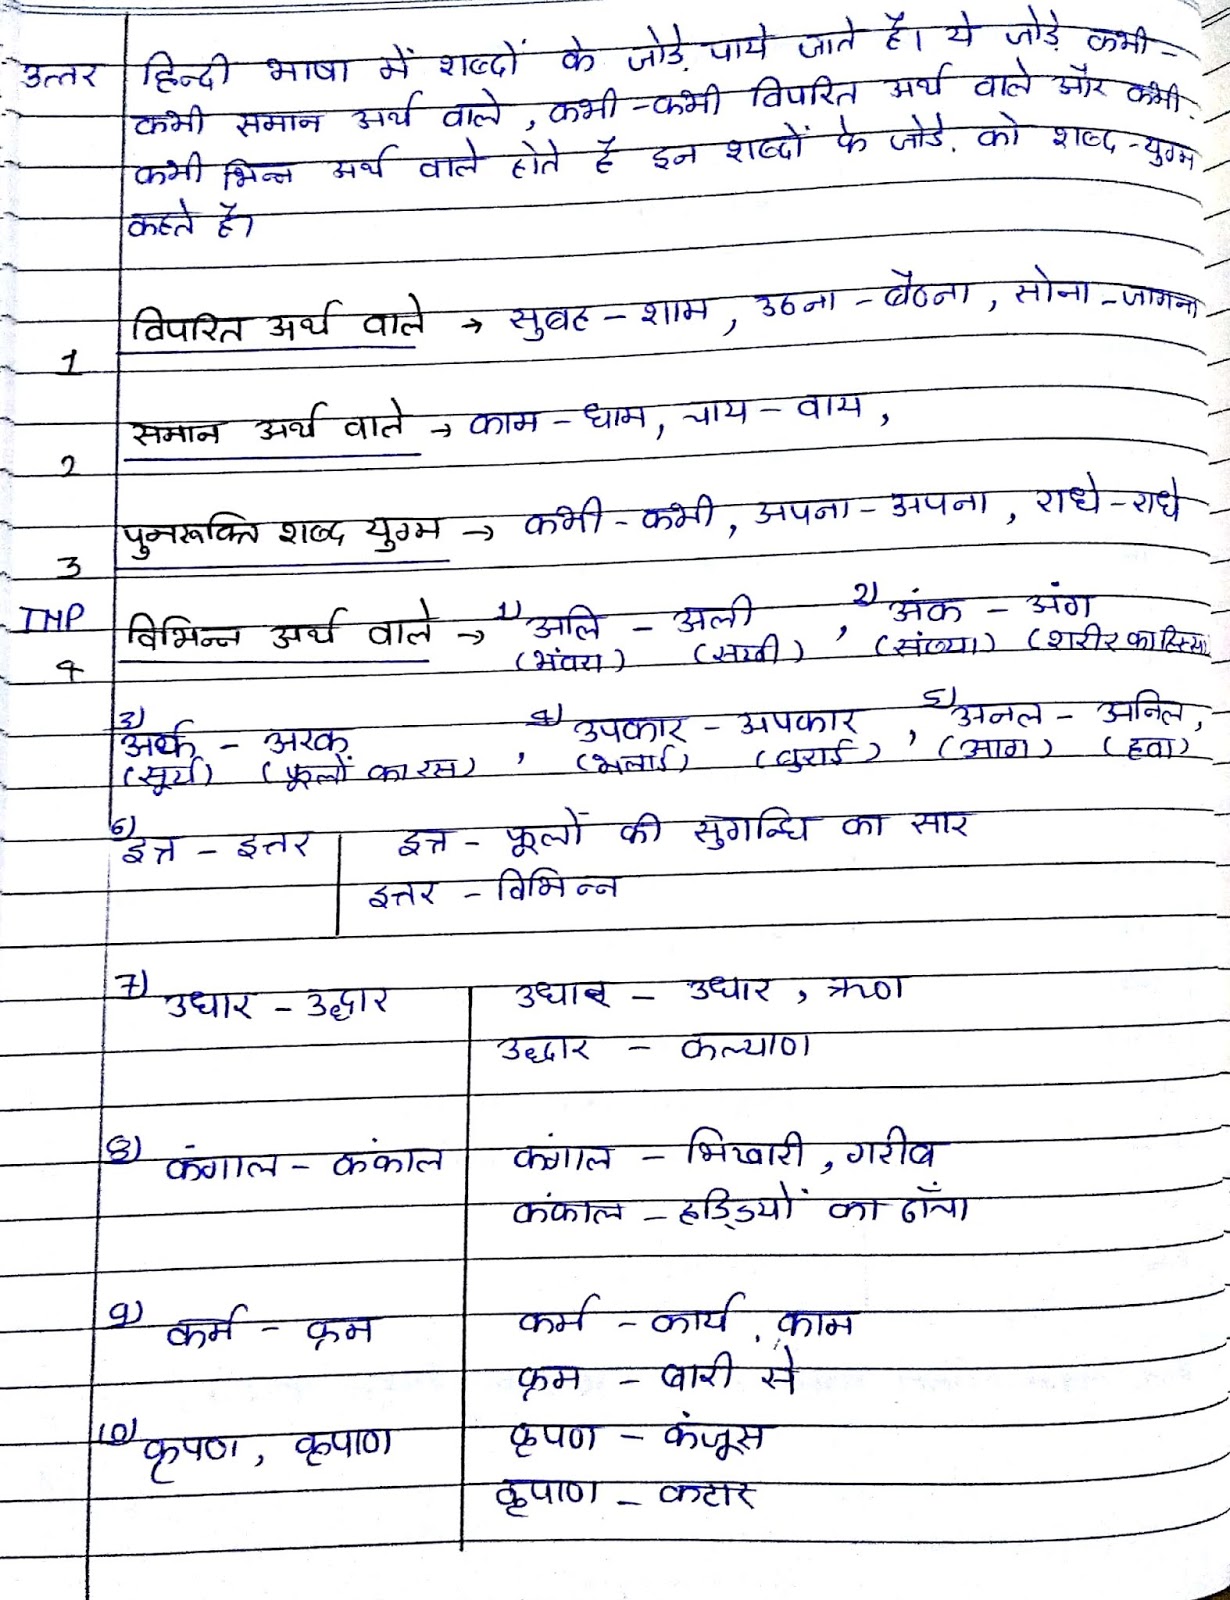 उत्तर हिन्दी भाषा में शब्दों के जोड़े पाये जाते हैं। ये जोड़े कभी-
कभी समान अर्थ वाले, कभी-कभी विपरित अर्थ वाले और कभी-
कभी भिन्न अर्थ वाले होते हैं इन शब्दों के जोड़े को शब्द-युग्म
कहते हैं।
1 विपरित अर्थ वाले → सुबह - शाम, उठना - बैठना, सोना - जागना
2 समान अर्थ वाले → काम - धाम, चाय - वाय,
3 पुनरूक्ति शब्द युग्म → कभी - कभी, अपना - अपना, राधे - राधे
IMP
4 विभिन्न अर्थ वाले → 1) अलि - अली, 2) अंक - अंग
(भंवरा) (सखी) (संख्या) (शरीर का हिस्सा)
3) अर्क - अरक, 4) उपकार - अपकार, 5) अनल - अनिल,
(सूर्य) (फूलों का रस) (भलाई) (बुराई) (आग) (हवा)
6) इत्र - इत्तर इत्र - फूलों की सुगन्धि का सार
इत्तर - विभिन्न
7) उधार - उद्धार उधार - उधार, ऋण
उद्धार - कल्याण
8) कंगाल - कंकाल कंगाल - भिखारी, गरीब
कंकाल - हड्डियों का ढाँचा
9) कर्म - क्रम कर्म - कार्य, काम
क्रम - बारी से
10) कृपण, कृपाण कृपण - कंजूस
कृपाण - कटार